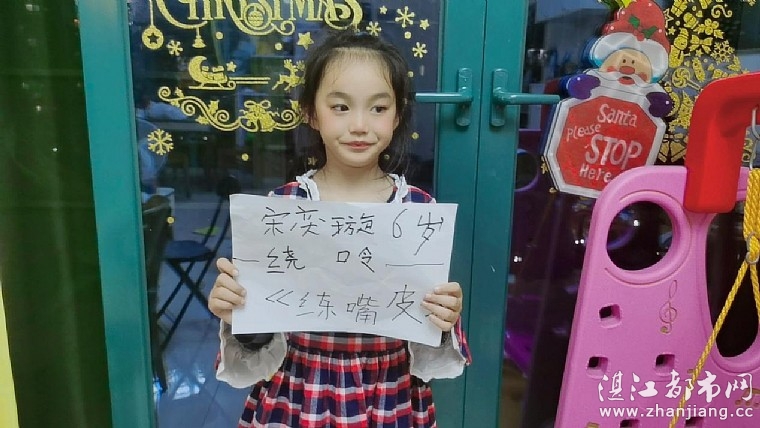 CHRISTMAS
Santa
Please
STOP
Here
宋奕璇 6岁
绕 口令
《练嘴皮
湛江都市网
www.zhanjiang.cc